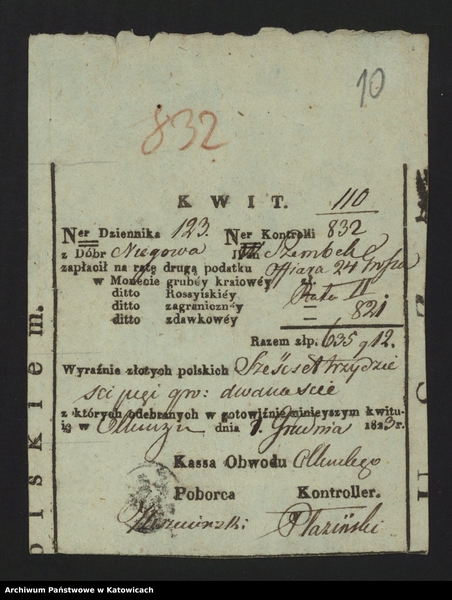 10
832
K W I T. 110
Ner Dziennika 123. Ner Kontrolli 832
z Dóbr Niegowa JW Szembek
zapłacił na ratę drugą podatku Offiara 24 Grosza
w Monecie grubéy kraiowéy Rata II.
ditto Rossyiskiéy
ditto zagraniczney 821.
ditto zdawkowéy
Razem złp. 635 g 12.
Wyraźnie złotych polskich Sześćset trzydzie
ści pięć gro: dwanaście
z których odebranych w gotowiźnie ninieyszym kwitu-
ię w Olkuszu dnia 1. Grudnia 1823 r.
Kassa Obwodu Olkuskiego
Poborca Kontroller.
Płaziński
olskiem.
Archiwum Państwowe w Katowicach